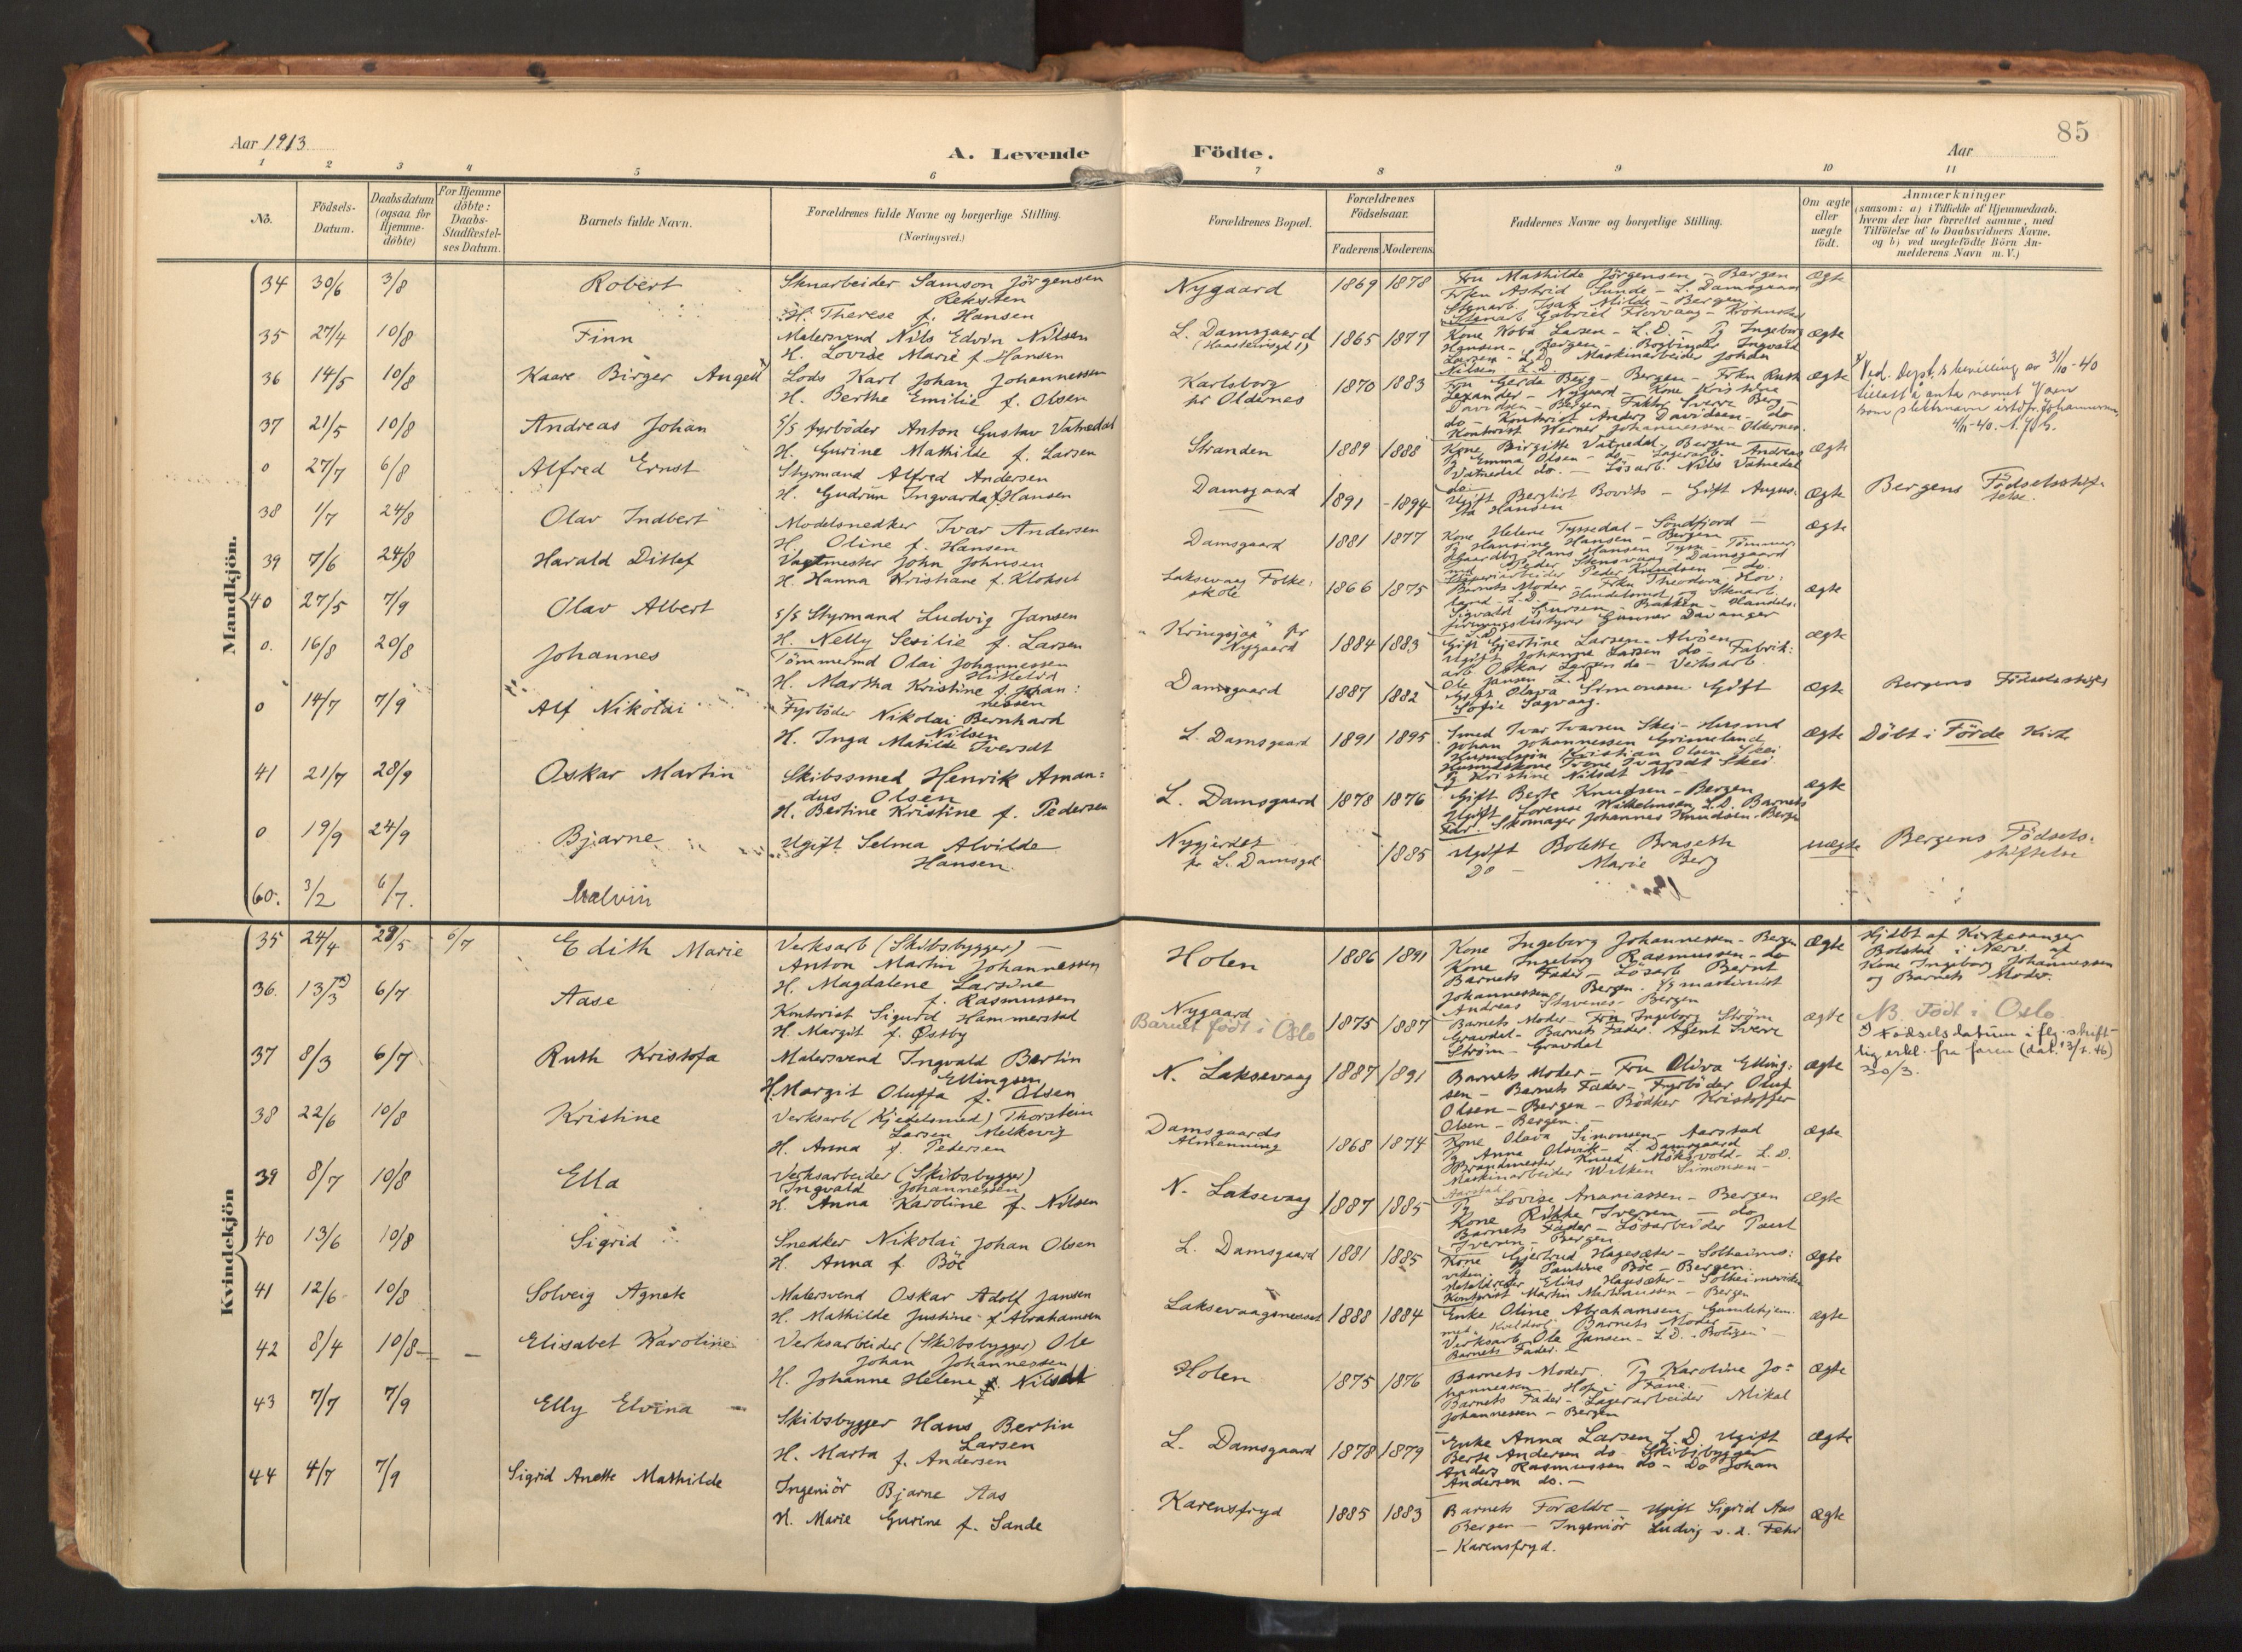 Aar 1913
A. Levende Födte.
Aar
85
1 2 3 4 5 6 7 8 9 10 11
No.
Födsels-
Datum.
Daabsdatum
(ogsaa for
Hjemme-
döbte)
For Hjemme
döbte:
Daabs-
Stadfæstel-
ses Datum.
Barnets fulde Navn.
Forældrenes fulde Navne og borgerlige Stilling.
(Næringsvei.)
Forældrenes Bopæl.
Forældrenes
Födselsaar.
Faderens Moderens
Faddernes Navne og borgerlige Stilling.
Om ægte
eller
uægte
födt.
Anmærkninger
(saasom: a) i Tilfælde af Hjemmedaab,
hvem der har forrettet samme, med
Tilföielse af to Daabsvidners Navne,
og b) ved uægtefödte Börn An-
melderens Navn m. V.)
Mandkjön.
34 30/6 3/8 Robert
Stenarbeider Samson Jörgensen
Reksten
H. Therese f. Hansen
Nygaard 1869 1878
Fru Mathilde Jörgensen - Bergen
Frkn Astrid Sunde - L. Damsgaard
Stenarb. Isak Milde - Bergen
Stenarb Gabriel
ægte
35 27/4 10/8 Finn
Malersvend Nils Edvin Nilsen
H. Lovise Marie f. Hansen
L. Damsgaard
1865 1877
Larsen - L.D. - Pg Ingeborg
Hansen - Bergen - Bogbinder Ingvald
Larsen - L.D. Maskinarbeider Johan
Nilsen L.D.
ægte
36 14/5 10/8 Kaare Birger Angell
Lods Karl Johan Johannessen
H. Berthe Emilie f. Olsen
Karlsborg
pr Oldernes
1870 1883
Fru Gerda Berg - Bergen - Frkn Ruth
Lexander - Nygaard - Kone Kristine
Davidsen - Bergen - Faktor Sverre Berg -
do - Kontorist Anders Davidsen - do
Kontorist Werner Johannessen - Oldernes.
ægte
Ved. Dept.s bevilling av 31/10-40
tillatt å anta navnet
som slektsnavn istdf. Johannessen,
4/11-40.
37 21/5 10/8 Andreas Johan
S/S fyrböder Anton Gustav Vatnedal
H. Gurine Mathilde f. Larsen
Stranden 1889 1888
Kone Birgitte Vatnedal - Bergen
Pg Emma Olsen - do - Lagerarb. Andreas
Vatnedal do. - Lösarb. Nils Vatnedal
do -
ægte
0 27/7 6/8 Alfred Ernst
Styrmand Alfred Andersen
H. Gudrun Ingvarda f. Hansen
Damsgaard 1891 - 1894
Ugift Bergliot - Gift Augus-
ta Hansen
ægte
Bergens Födselsstif-
telse.
38 1/7 24/8 Olav Indbert
Modelsnedker Ivar Andersen
H. Oline f. Hansen
Damsgaard 1881 1877
Kone Helene Tyssedal - Söndfjord -
Pg Hansine Hansen - Bergen
Gaardbr. Hans Hansen - Tömmer-
md Peder Stensvaag - Damsgaard
Peder Knudsen - do.
ægte
39 7/6 24/8 Harald Ditlef
Vagtmester John Johnsen
H. Hanna Kristiane f. Klokset
Laksevaag Folke-
skole
1866 1875
Barnets Moder - Frkn Theodora Hov-
land - L.D. - Handelsmd og Stenarb.
Sigvald - Handels-
Gunnar Davanger
L.D.
ægte
40 27/5 7/9 Olav Albert
S/S Styrmand Ludvig Jansen
H. Nelly Sesilie f. Larsen
"Kringsjaa" pr
Nygaard
1884 1883
Gift Gjertine Larsen - Alvöen
Ugift Johanne Larsen do - Fabrik-
arb Oskar Larsen do - Verksarb.
Ole Jansen L.D.
ægte
0. 16/8 20/8 Johannes
Tömmermd Olai Johannessen
H. Martha Kristine f. Johan-
nessen
Damsgaard 1887 1882
Gift Olava Simonsen Gift
Sofie Sagvaag.
ægte
Bergens Födselsstiftelse
0 14/7 7/9 Alf Nikolai
Fyrböder Nikolai Bernhard
Nilsen
H. Inga Matilde Iversdt
L. Damsgaard 1891 1895
Smed Ivar Ivarsen Skei - Husmd
Johan Johannessen Grimeland
Husmdssön Kristian Olsen Skei
Husmdskone Ivarsdt Skei
Pg Kristine Nilsdt Mo -
ægte
Döbt i Förde Kirke
41 21/7 28/9 Oskar Martin
Skibssmed Henrik Aman-
dus Olsen
H. Bertine Kristine f. Pedersen
L. Damsgaard 1878 1876
Gift Berte Knudsen - Bergen
Ugift Lorense Wilhelmsen L.D. Barnets
Far. Skomager Johannes Knudsen - Bergen
ægte
0 19/9 24/9 Bjarne
Ugift Selma Alvilde
Hansen.
Nygjerdet
pr L. Damsgd
1885
Ugift Bolette Braseth
Do - Marie Berg
uægte
Bergens Födsels-
stiftelse
60. 3/2 6/7. Malvin
Kvindekjön
35 24/4 29/5 6/7 Edith Marie
Verksarb (Skibsbygger) -
Anton Martin Johannessen
H. Magdalene Larsine
f. Rasmussen
Holen 1886 1891
Kone Ingeborg Johannessen - Bergen
Kone Ingeborg Rasmussen - do
Barnets Fader - Lösarb Bernt
Johannessen - Bergen. S/S maskinist
Andreas Stavenes - Bergen
ægte
Hjdbt af Kirkesanger
Bolstad i Nærv. af
Kone Ingeborg Johannessen
og Barnets Moder.
36. 13/3 6/7 Aase
Kontorist Sigurd Hammerstad
H. Margit f. Østby
Nygaard
Barnet födt i Oslo
1875 1887
Barnets Moder - Fru Ingeborg Ström
Gravdal - Barnets Fader. Agent Sverre
Ström - Gravdal
ægte
NB. Födt i Oslo
Födselsdatum iflg. skrift-
lig erkl. fra faren (dat. 13/2. 46)
30/3.
37 8/3 6/7 Ruth Kristofa
Malersvend Ingvald Bertin
Ellingsen
H. Margit Oluffa f. Olsen
N. Laksevaag 1887 1891
Barnets Moder - Fru Oliva Elling-
sen - Barnets Fader - Fyrböder Oluf
Olsen - Bergen - Bödker Kristoffer
Olsen - Bergen. -
ægte
38 22/6 10/8 Kristine
Verksarb (Kjedelsmed) Thorstein
Larsen Melkevig
H. Anna f. Pedersen
Damsgaards
Almenning
1868 1874
Kone Olava Simonsen - Aarstad
Pg Anna Olsvik - L. Damsgaard
Brandmester Knud - L.D.
Maskinarbeider Wilken Simonsen -
Aarstad.
ægte
39 8/7 10/8 Ella
Verksarbeider (Skibsbygger)
Ingvald Johannessen
H. Anna Karoline f. Nilsen
N. Laksevaag 1887 1885
Pg Lovise Ananiassen - Bergen
Kone Rikke Iversen - do
Barnets Fader - Lösarbeider Paul
Iversen - Bergen
ægte
40 13/6 10/8 Sigrid
Snedker Nikolai Johan Olsen
H. Anna f. Böe
L. Damsgaard 1881 1885
Kone Gjertrud Hagesæter - Solheims-
viken. Pg Pauline Böe - Bergen.
Metaldreier Elias Hagesæter - Solheimsviken
Kontorist Martin Martinussen - Bergen
ægte
41 12/6 10/8 Solveig Agnete
Malersvend Oskar Adolf Jansen
H. Mathilde Justine f Abrahamsen
Laksevaagsneset 1888 1884
Enke Oline Abrahamsen, Gamlehjem.
Barnets Moder -
Verksarb. Ole Jansen - L.D.
Barnets Fader. -
ægte
42 8/4 10/8 - - Elisabet Karoline
Verksarbeider (Skibsbygger) Ole
Johan Johannessen
H. Johanne Helene f. Nilsdt
Holen 1875 1876
Barnets Moder. Pg Karoline Jo-
hannessen - Hop i Fane. -
Barnets Fader - Lagerarbeider Mikal
Johannessen - Bergen
ægte
43 7/7 7/9 Elly Elvina -
Skibsbygger Hans Bertin
Larsen
H. Marta f. Andersen
L. Damsgaard 1878 1879
Enke Anna Larsen L.D. Ugift
Berte Andersen do - Skibsbygger
Anders Rasmussen do - Do Johan
Andersen do. -
ægte
44 4/7 7/9 Sigrid Anette Mathilde
Ingeniör Bjarne Aas
H. Marie Gurine f. Sande
Karensfryd 1885 1883
Barnets Forældre - Ugift Sigrid Aas
Bergen - Ingeniör Ludvig v. d. Fehr
- Karensfryd.
ægte